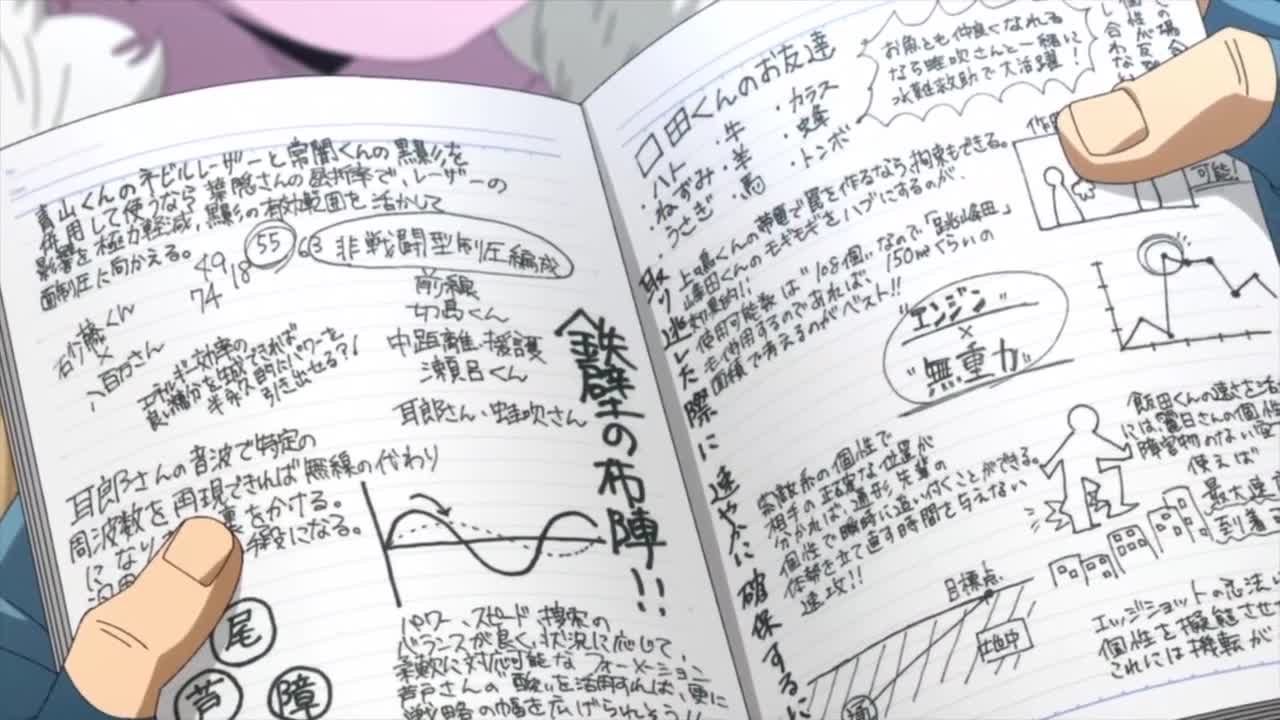 青山くんのネビルレーザーと常闇くんの黒影を
併用して使うなら葉隠さんの屈折率で、レーザーの
影響を極力軽減,黒影の有効範囲を活かして
面制圧に向かえる。
49
18
55
63
74
非戦闘型制圧編成
前線
切島くん
中距離・援護
瀬呂くん
耳郎さん・蛙吹さん
砂藤くん
×
八百万さん
エネルギー効率の
良い糖分を生成できれば
半永久的にパワーを
引き出せる?!
鉄壁の布陣!!
耳郎さんの音波で特定の
周波数を再現できれば無線の代わり
になり
をかける。
になる。
尾
芦
障
パワー、スピード、捜索の
バランスが良く、状況に応じて、
柔軟に対応可能なフォーメーション
芦戸さんの酸を活用すれば、更に
戦略の幅を広げられそう!!
口田くんのお友達
・ハト
・ねずみ
・うさぎ
・牛
・羊
・馬
・カラス
・トンボ
お魚とも仲良くなれる
なら蛙吹さんと一緒に
水難救助で大活躍!
の場合
個性が
合わない
上鳴くんの帯電で罠を作るなら、拘束もできる。
峰田くんのモギモギをハブにするのが、
効果的!!
使用可能数は"108個"なので
も使用するのであれば、150㎡ぐらいの
面積で考えるのがベスト!!
可能!
取り逃した際に速やかに確保するに
"エンジン"
×
"無重力"
飯田くんの速さを活
には麗日さんの個性
障害物のない空
使えば
最大速
到着
索敵系の個性で
相手の正確な位置が
分かれば、遁形、失着の
個性で瞬時に追い付くことができる。
体勢を立て直す時間を与えない
速攻!!
目標点
エッジショットの忍法
個性を擬態させ
これには機転が